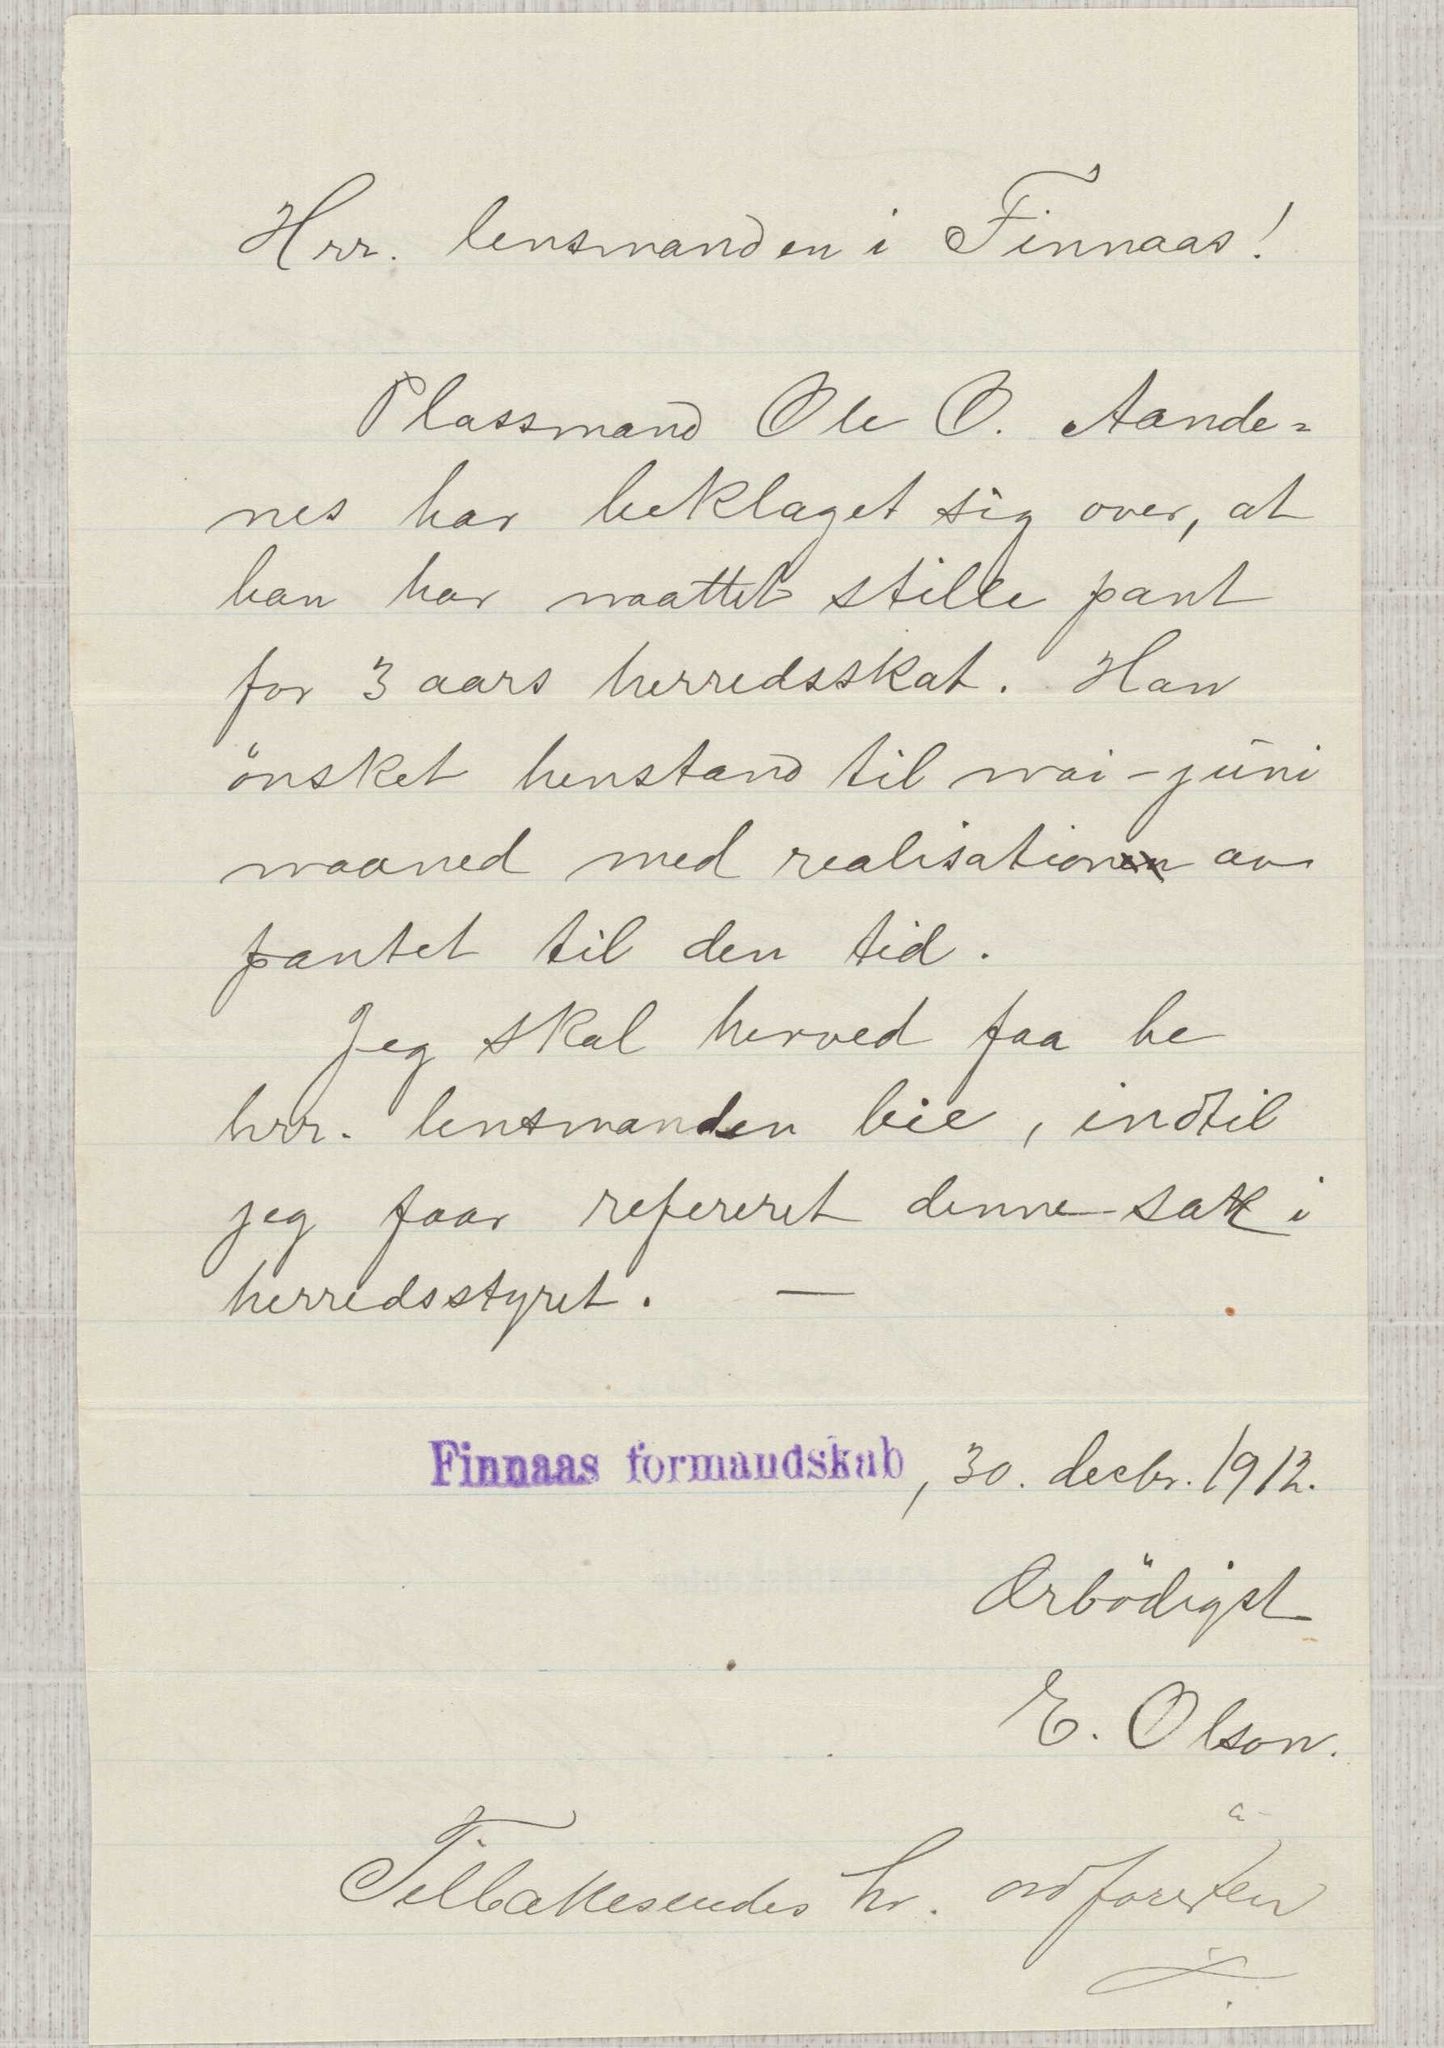 Hrr. lensmanden i Finnaas!
Plassmand Ole O. Aande=
nes har beklaget sig over, at
han har maattet stille pant
for 3 aars herredsskat. Han
önsket henstand til mai-juni
maaned med realisation av
pantet til den tid.
Jeg skal herved faa be
hrr. lensmanden bie, indtil
jeg faar refereret denne sak i
herredsstyret. —
Finnaas formandskab, 30. decbr. 1912.
Ærbödigst
E. Olson.
Tilbakesendes hr. ordføreren